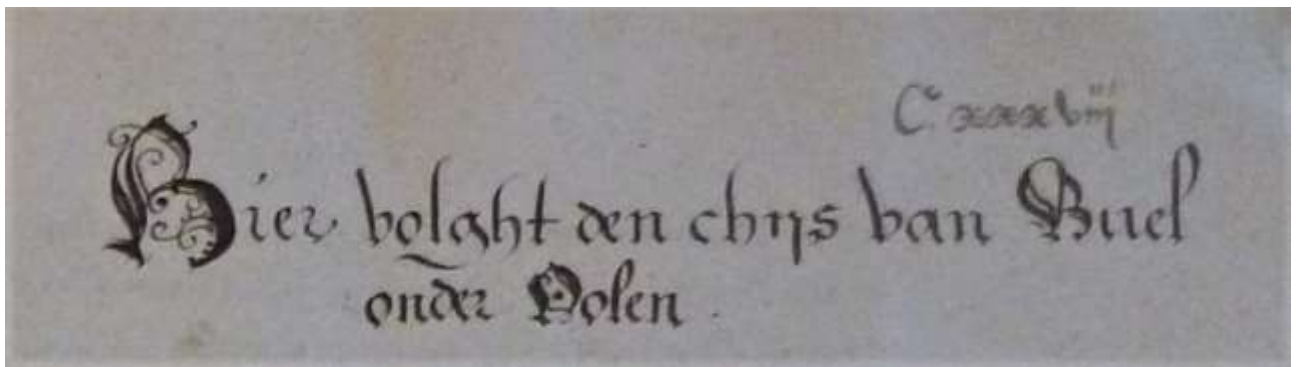 Cᶜ xxxviij
Hier volght den chijs van Buel
onder Oolen.